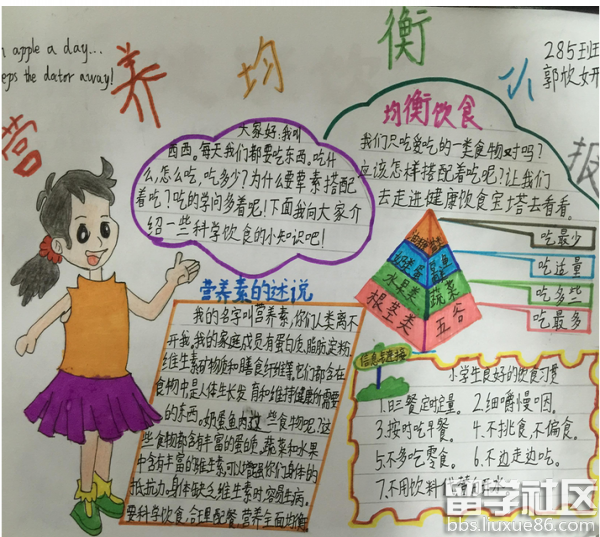 n apple a day...
eeps the dator away!
营养均衡小报
285班
郭欣妍
大家好:我叫
西西。每天我们都要吃东西。吃什
么,怎么吃,吃多少?为什么要荤素搭配
着吃?吃的学问多着呢!下面我向大家介
绍一些科学饮食的小知识吧!
均衡饮食
我们只吃爱吃的一类食物对吗?
应该怎样搭配着吃呢?让我们
去走进健康饮食宝塔去看看。
吃最少
吃适量
吃多些
吃最多
水果类
蔬菜
根茎类
五谷
营养素的述说
我的名字叫营养素,你们人类离不
开我。我的家庭成员有蛋白质、脂肪、淀粉
维生素、矿物质和膳食纤维等。它们都含在
食物中,是人体生长发育和维持健康所需要
的东西。奶蛋鱼肉这些食物呢?这
些食物都含有丰富的蛋白质,蔬菜和水果
中含有丰富的维生素,可以增强你们身体的
抵抗力。身体缺乏维生素时,容易生病。
要科学饮食,合理配餐,营养全面均衡
信息卡连接
小学生良好的饮食习惯
1.日三餐定时定量。 2.细嚼慢咽。
3.按时吃早餐。 4.不挑食,不偏食。
5.不多吃零食。 6.不边走边吃。
7.不用饮料代替白开水。
留学社区
bbs.liuxue86.com